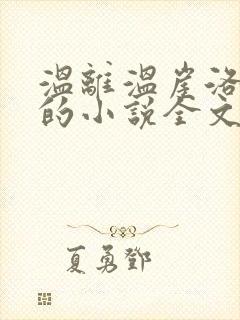 温離温崖洛
的小說全文
夏勇鄧